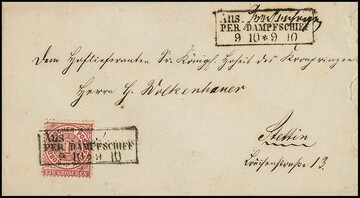 AUS
PER DAMPFSCHIFF
9 10 * 9 10
Dem Hoflieferanten Sr. Königl. Hoheit des Kronprinzen
Herrn H. Wolkenhauer
Stettin
Louisenstraße 13.
AUS
PER DAMPFSCHIFF
9 10 * 9 10
EIN GROSCHEN